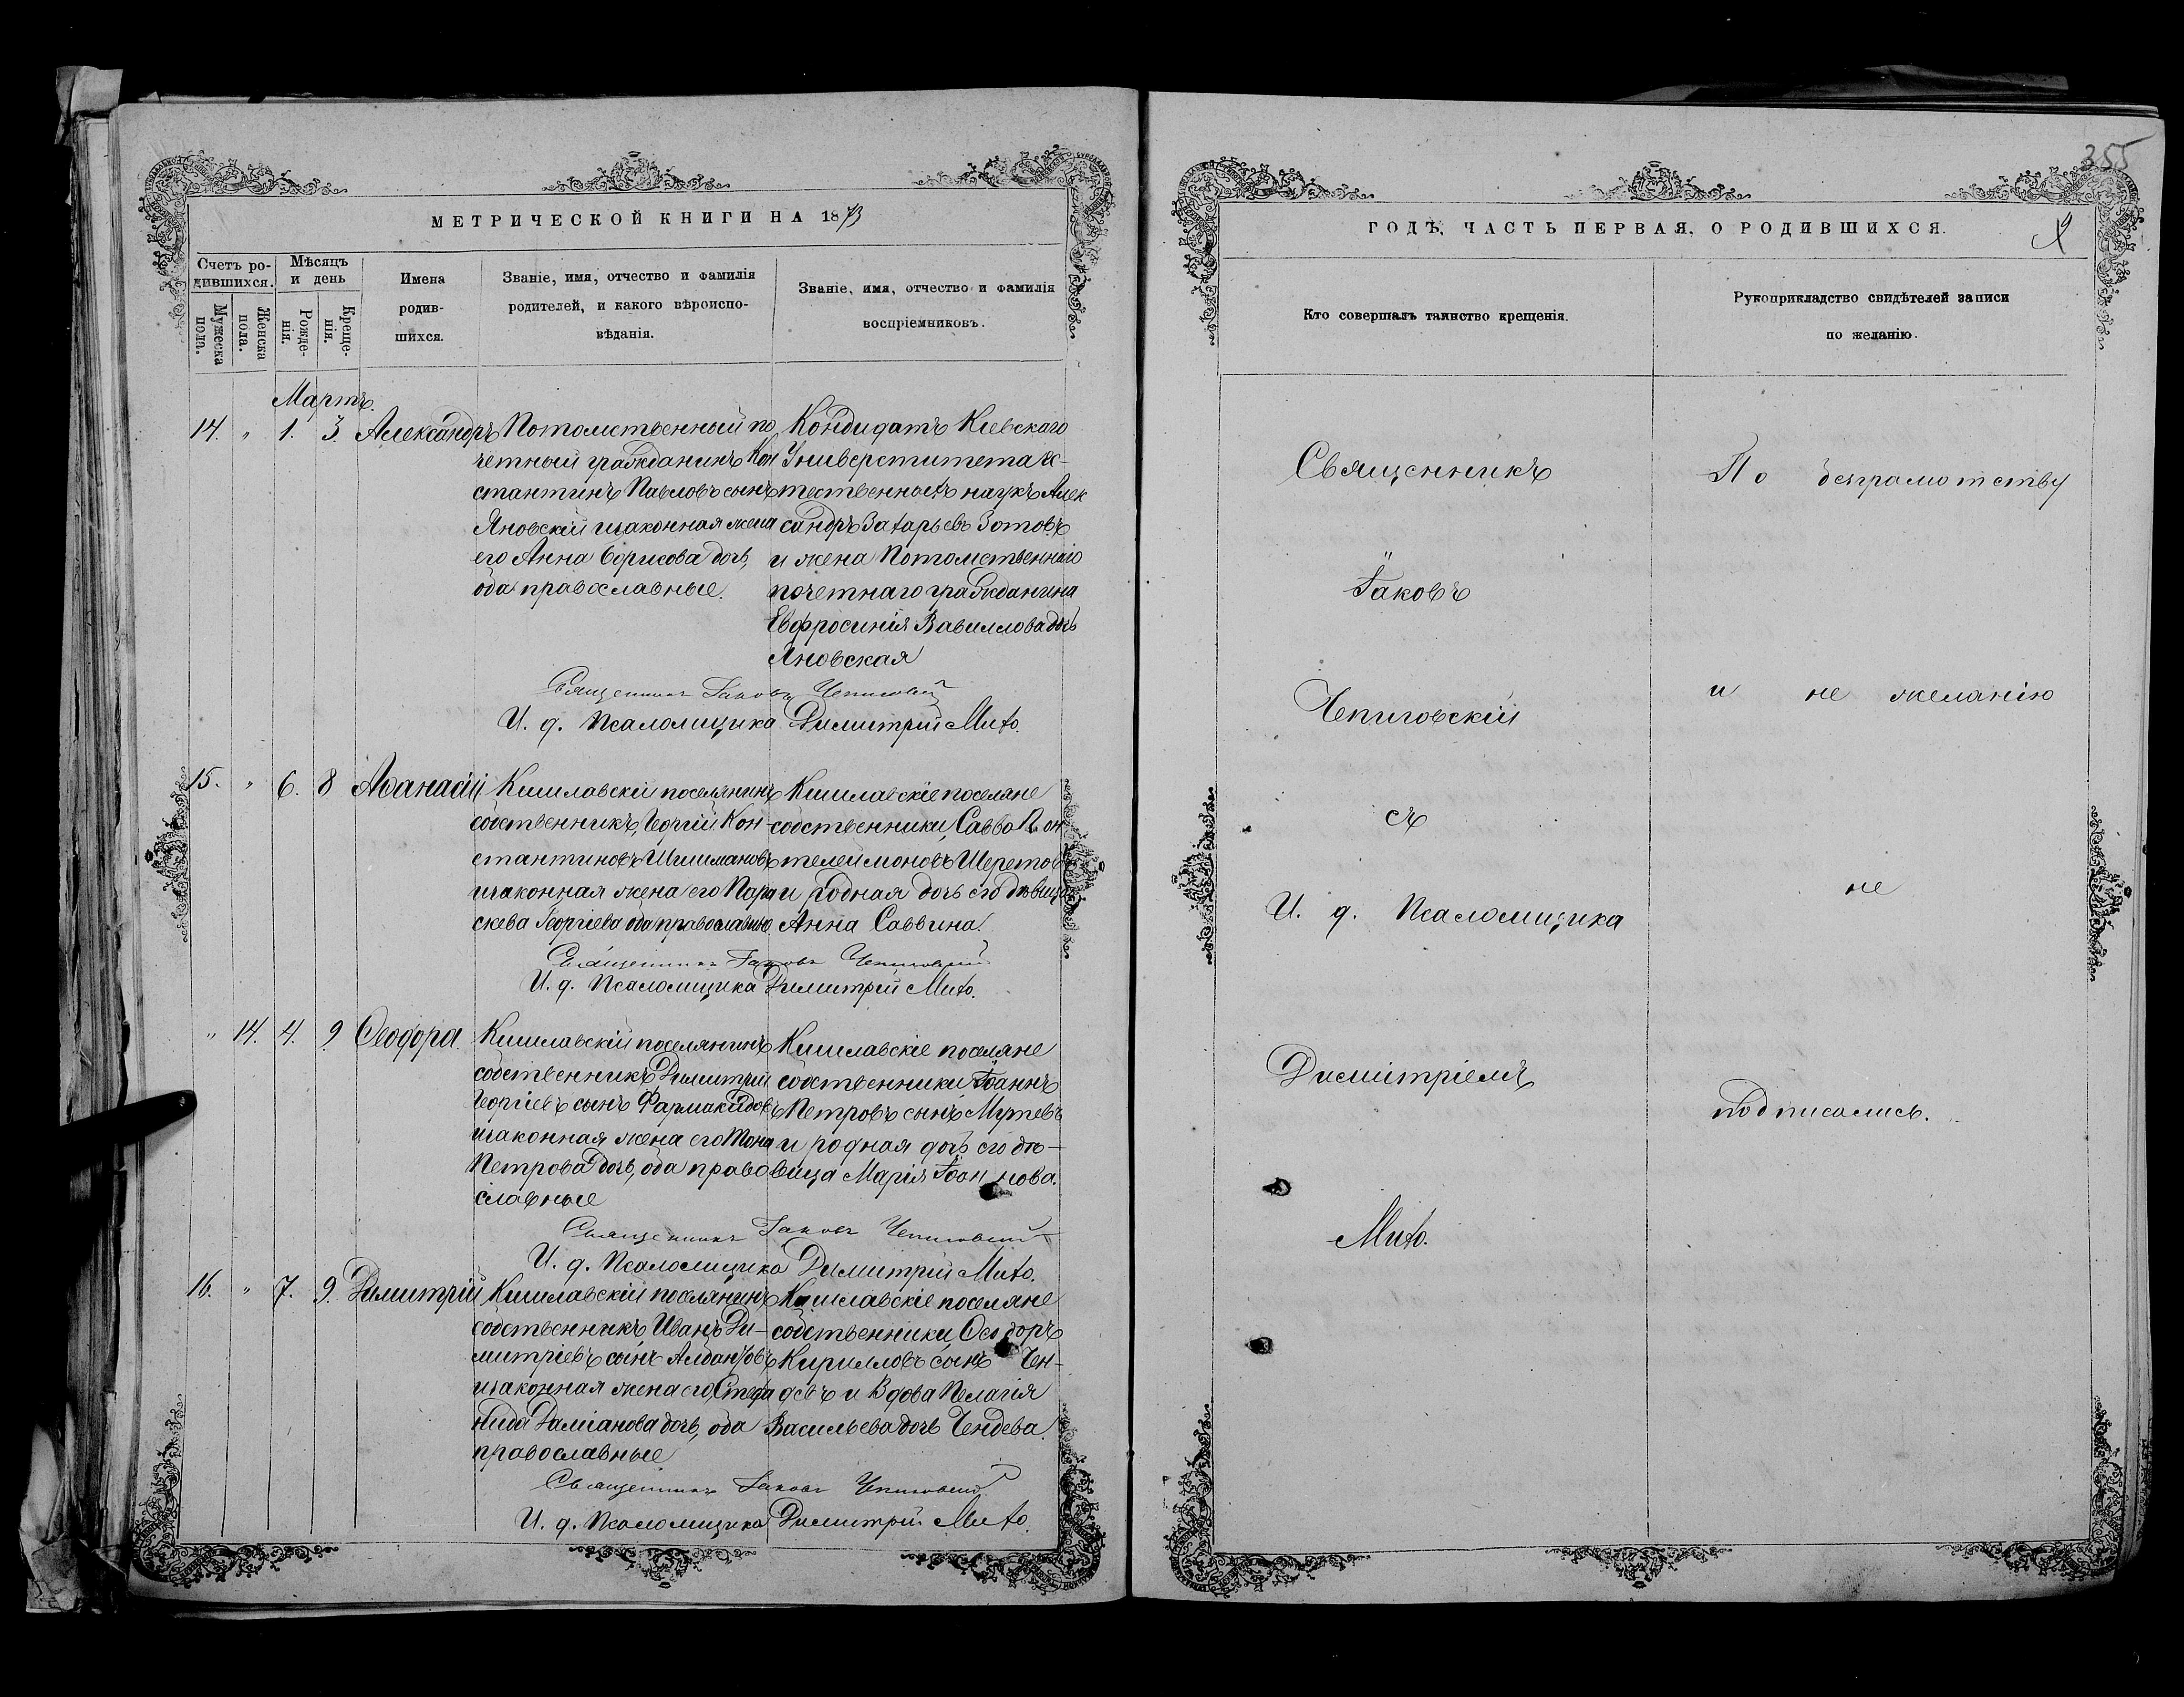 МЕТРИЧЕСКОЙ КНИГИ НА 1873
Счетъ ро-
дившихся.
Мѣсяцъ
и день
Мужеска
пола.
Женска
пола.
Рожде-
нія.
Креще-
нія.
Имена
родив-
шихся.
Званіе, имя, отчество и фамилія
родителей, и какого вѣроиспо-
вѣданія.
Званіе, имя, отчество и фамилія
воспріемниковъ.
Мартъ.
14. " 1. 3. Александръ
Потомственный по
четный гражданинъ Кон
стантинъ Павловъ сынъ
Яновскій и законная жена
его Анна Борисова дочь,
оба православные.
Кондидатъ Кіевскаго
Университета ес-
тественныхъ наукъ Алек
сандръ Захарьевъ Зотовъ
и жена Потомственнаго
почетнаго гражданина
Евфросинія Вавиллова дочь
Яновская
Священникъ Іаковъ Чепиговскій
И. д. Псаломщика Димитрій Михо.
15. " 6. 8 Аѳанасій
Кишлавскій поселянинъ
собственникъ, Георгій Кон-
стантиновъ Шишмановъ
и законная жена его Пара
скева Георгіева оба православные
Кишлавскіе поселяне
собственники, Савва Пан
телеймоновъ Шеретовъ
и родная дочь его дѣвица
Анна Саввина.
Священникъ Іаковъ Чепиговскій
И. д. Псаломщика Димитрій Михо.
" 14. 4. 9 Ѳеодора.
Кишлавскій поселянинъ
собственникъ, Димитрій
Георгіевъ сынъ Фармакидовъ
и законная жена его
Петрова дочь, оба право
славные
Кишлавскіе поселяне
собственники Іоаннъ
Петровъ сынъ
и родная дочь его дѣ-
вица Марія Іоаннова.
Священникъ Іаковъ Чепиговскій
И. д. Псаломщика Димитрій Михо.
16. " 7. 9. Димитрій
Кишлавскій поселянинъ
собственникъ, Иванъ Ди-
митріевъ сынъ
и законная жена его, Стефа
нида Даміанова дочь, оба
православные
Кишлавскіе поселяне
собственники, Ѳеодоръ
Кирилловъ сынъ Чен-
девъ и Вдова Пелагія
Васильева дочь Чендева.
Священникъ Іаковъ Чепиговскій
И. д. Псаломщика Димитрій Михо.
355
ГОДЪ, ЧАСТЬ ПЕРВАЯ, О РОДИВШИХСЯ.
Кто совершалъ таинство крещенія.
Рукоприкладство свидѣтелей записи
по желанію.
Священникъ
Іаковъ
Чепиговскій
съ
И. д. Псаломщика
Димитріемъ
Михо.
По безграмотству
и не желанію
не
подписались.